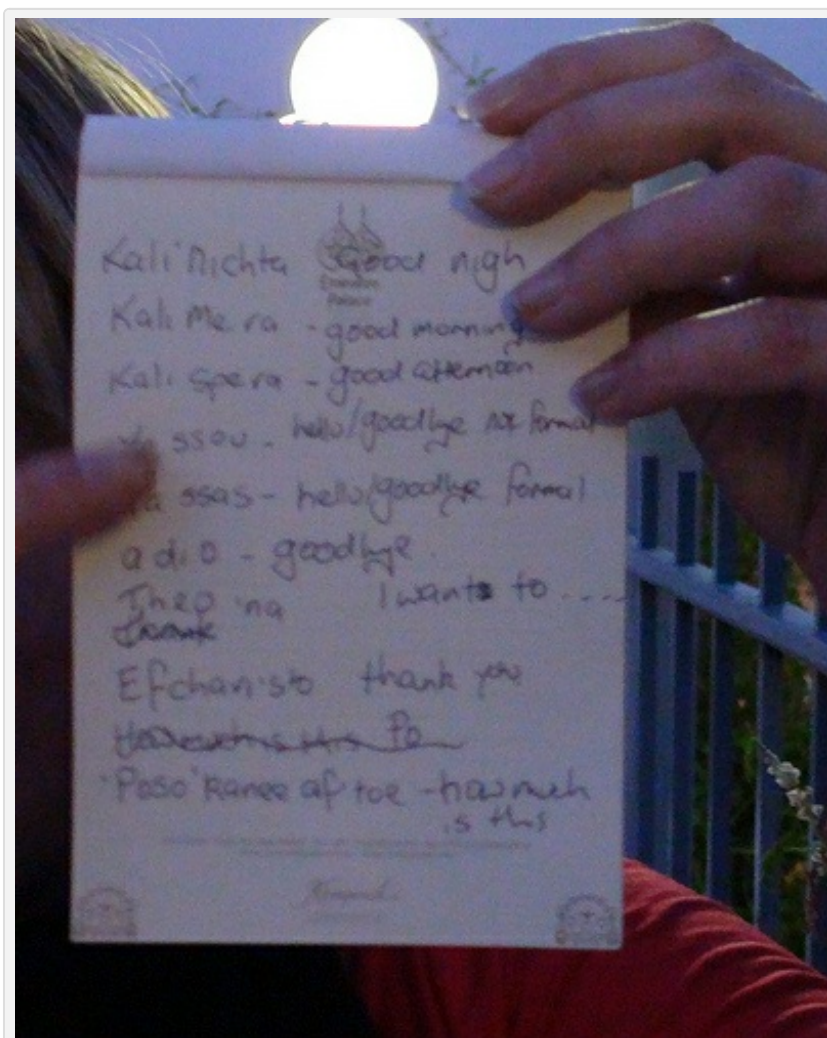 Kali'Nichta Good nigh
Palace
Kali Mera - good morning
Kali Spera - good afternoon
ssou - hello/goodbye not formal
ssas - hello/goodbye formal
adio - goodbye
Theo 'na I want to ....
Efcharisto thank you
Po
'Poso 'kanee af toe - how much
is this